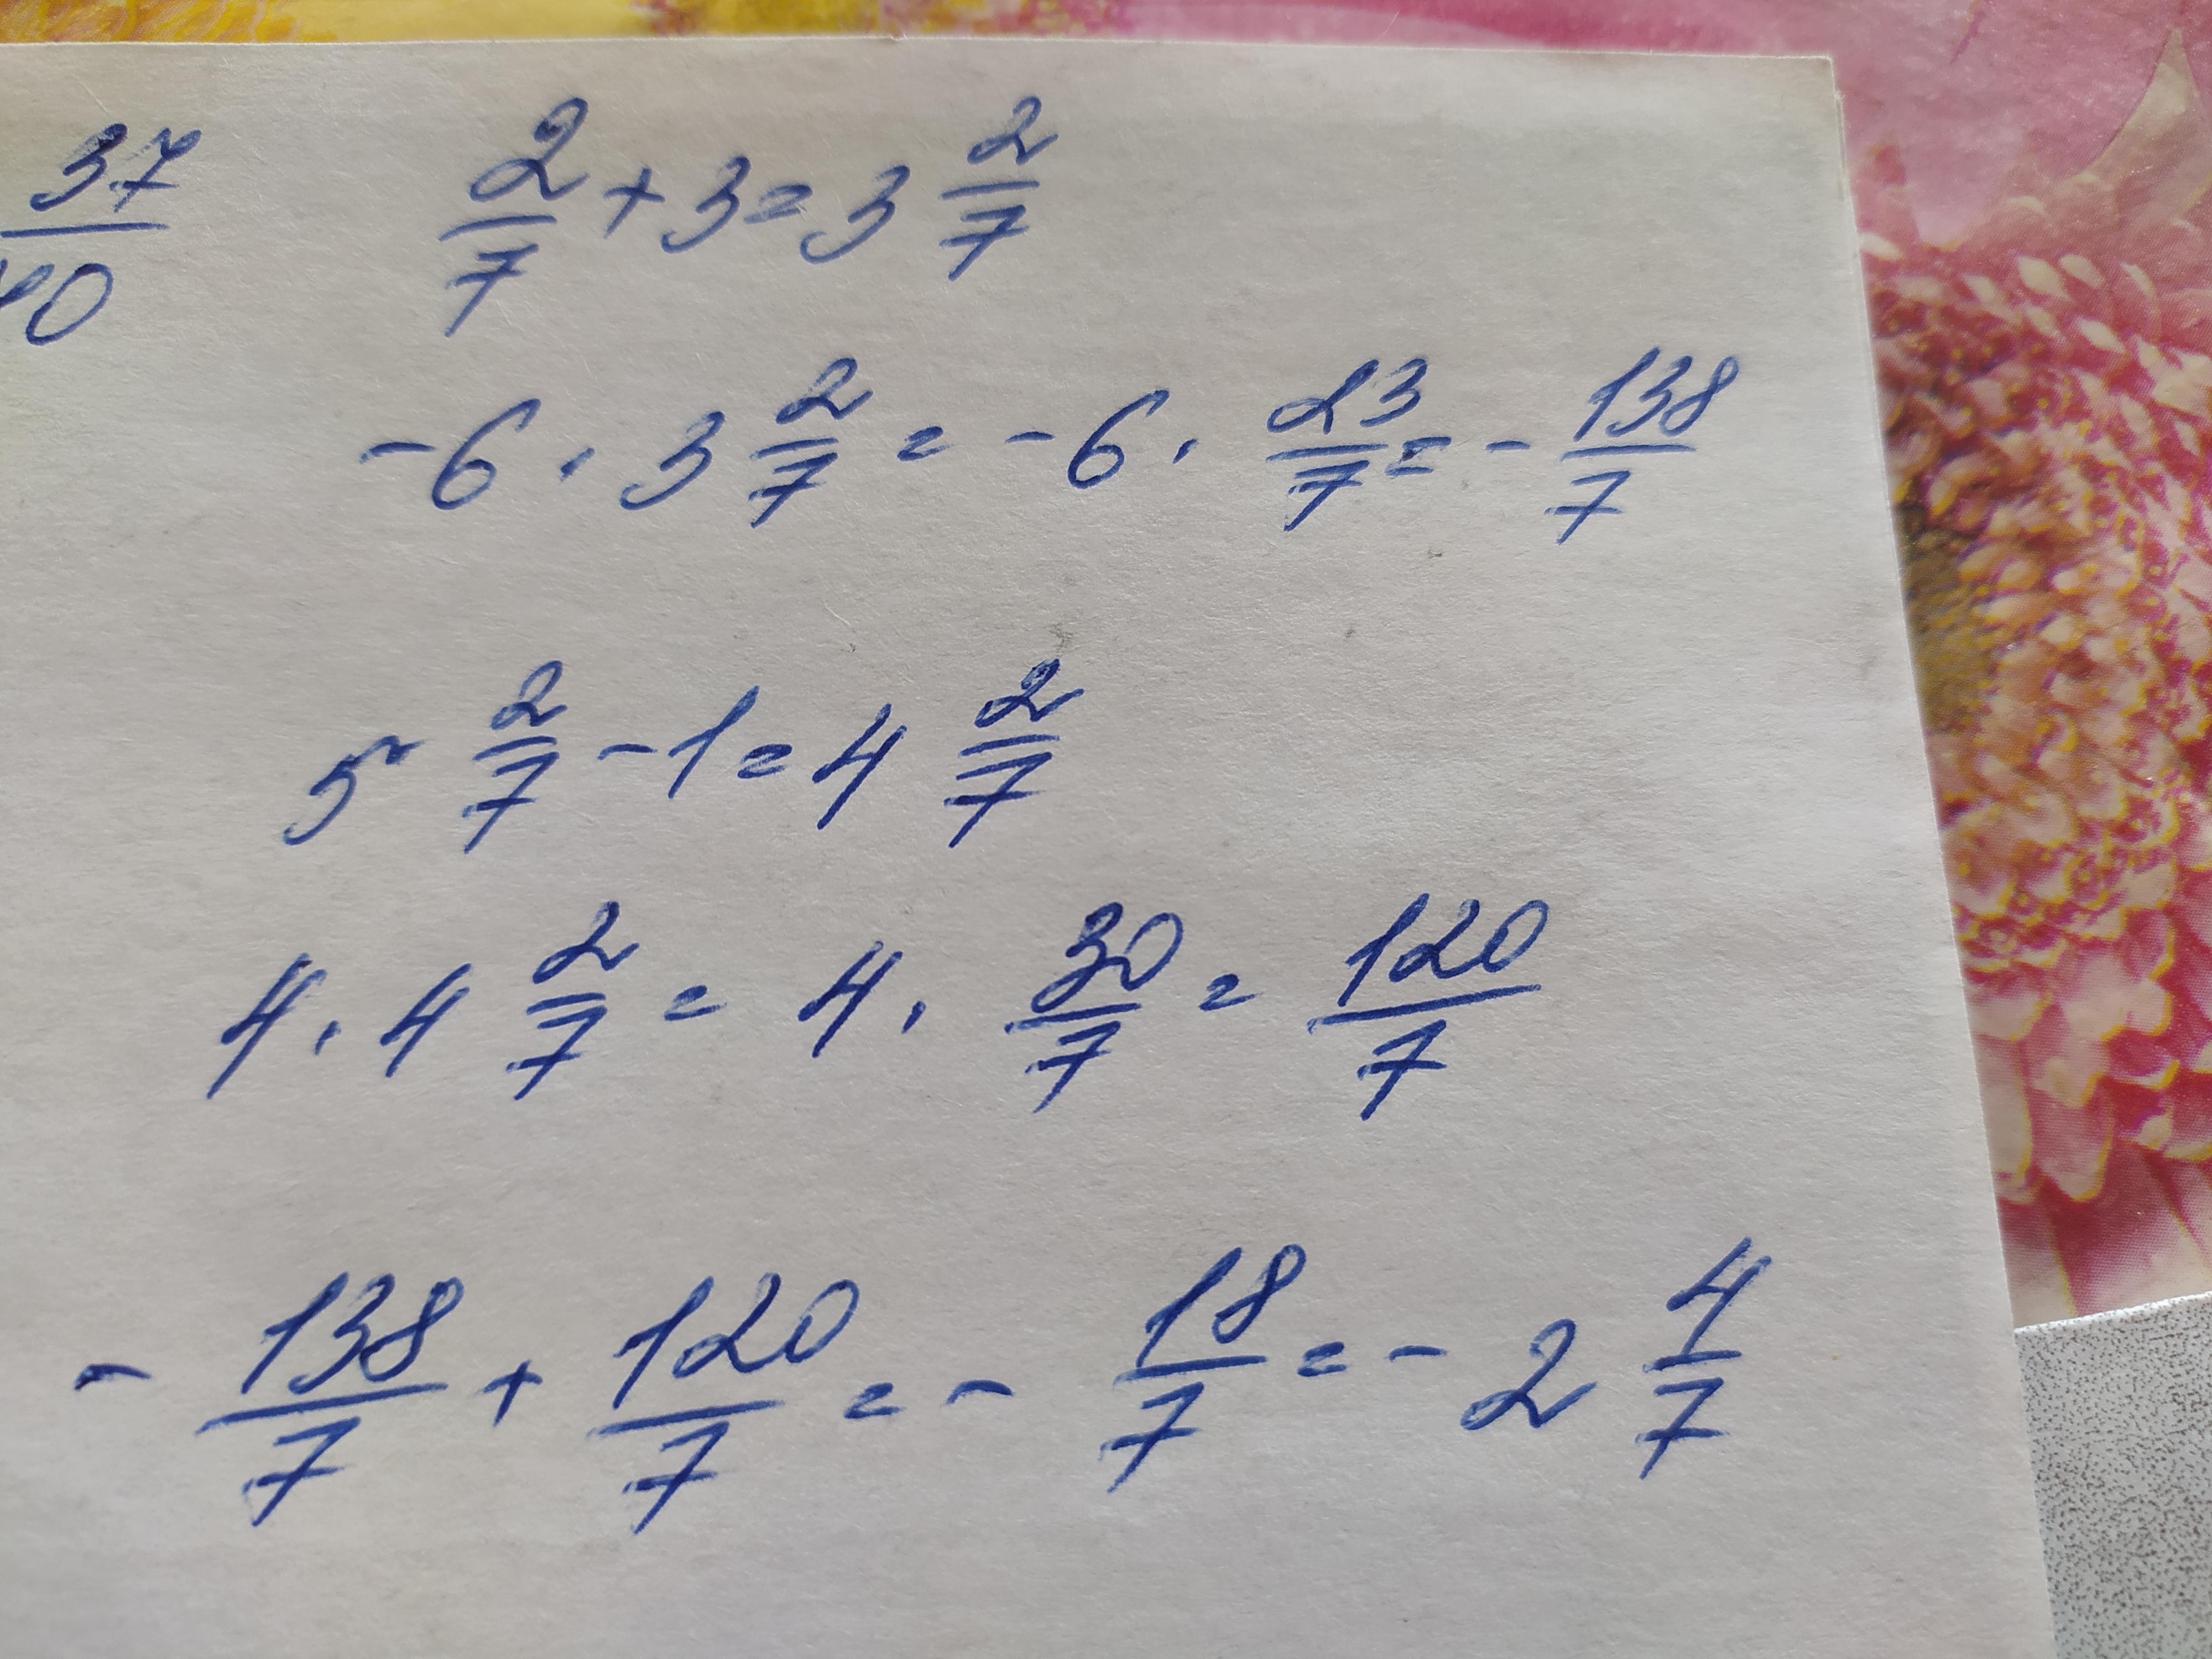 37/40
2/7 + 3 = 3 2/7
-6 · 3 2/7 = -6 · 23/7 = - 138/7
5 2/7 - 1 = 4 2/7
4 · 4 2/7 = 4 · 30/7 = 120/7
- 138/7 + 120/7 = - 18/7 = - 2 4/7